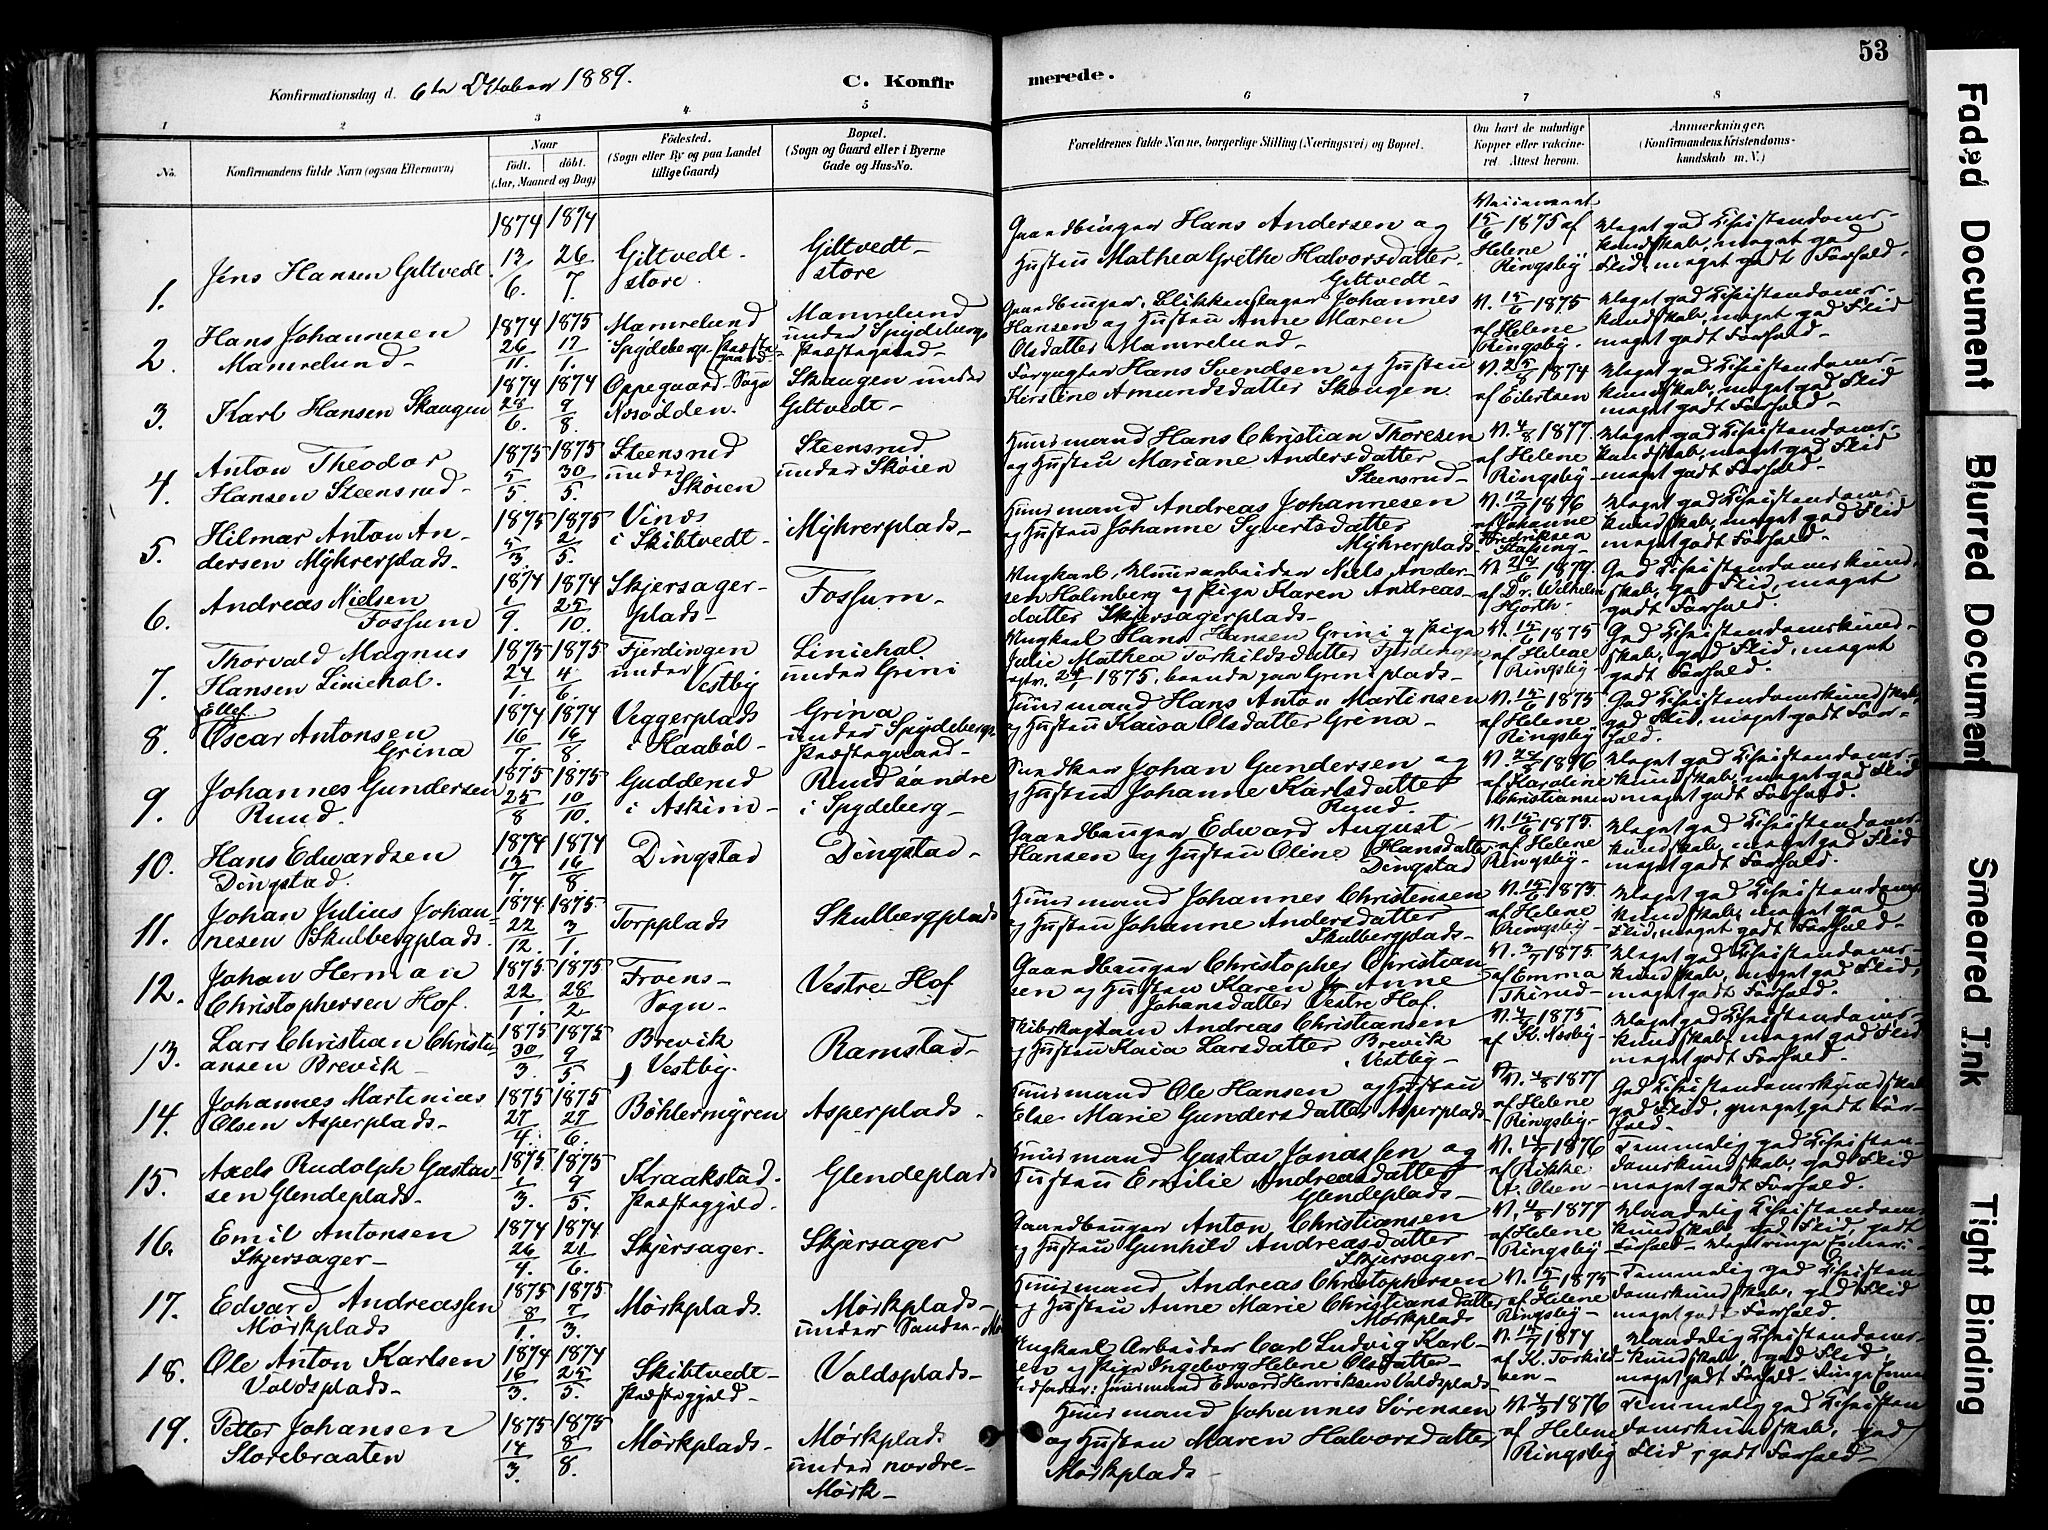 53
Konfirmationsdag d. 6te Oktober 1889.
C. Konfirmerede.
1 2 3 4 5 6 7 8
No.
Konfirmandens fulde Navn (ogsaa Efternavn)
Naar
födt. döbt.
(Aar, Maaned og Dag)
Födested.
(Sogn eller By og paa Landet
tillige Gaard)
Bopæl.
(Sogn og Gaard eller i Byerne
Gade og Hus-No.
Forældrenes fulde Navne, borgerlige Stilling (Næringsvei) og Bopæl.
Om havt de naturlige
Kopper eller vakcine-
ret. Attest herom.
Anmærkninger.
(Konfirmandens Kristendoms-
kundskab m. V.)
1. Jens Hansen Giltvedt.
1874 13/6. 1874 26/7.
Giltvedt store
Giltvedt store
Gaardbruger Hans Andersen og
Hustru Mathea Grethe Halvorsdatter
Giltvedt
15/6 1875 af
Helene
Ringsby
Meget god Christendoms-
kundskab, meget god
Flid, meget godt Forhold.
2. Hans Johannesen
Mamrelund
1874 26/11. 1875 17/1.
Mamrelund
Spydebergs Præstegaard
Mamrelund
under Spydebergs
Præstegaard
Gaardbruger, Blikkenslager Johannes
Hansen og Hustru Anne Maren
Olsdatter Mamrelund
V. 15/6 1875
af Helene
Ringsby.
Meget god Christendoms-
kundskab, meget god Flid
meget godt Forhold.
3. Karl Hansen Skaugen
1874 28/6. 1874 9/8.
Oppegaard Sogn
Nesodden.
Skaugen under
Giltvedt
Forpagter Hans Svendsen og Hustru
Kirstine Amundsdatter Skougen.
V. 25/8 1874
af Eilertsen
Meget god Christendoms-
kundskab, meget god Flid
meget godt Forhold
4. Anton Theodor
Hansen Steensrud
1875 5/5. 1875 30/5.
Steensrud
under Skøien
Steensrud
under Skøien
Husmand Hans Christian Thoresen
og Hustru Mariane Andersdatter
Steensrud
V. 4/8 1877
af Helene
Ringsby
Meget god Christendoms-
kundskab, meget god Flid
meget godt Forhold.
5. Hilmar Anton An-
dersen Myhrerplads
1875 5/3. 1875 2/5.
Vines
i Skibtvedt
Myhrerplads
Husmand Andreas Johannesen
og Hustru Johanne Syvertsdatter
Myhrerplads
V. 12/7 1876
af Johanne
Fredriksen
Meget god Christendoms-
kundskab, meget god Flid
meget godt Forhold.
6. Andreas Nielsen
Fossum
1874 1/9. 1874 25/10.
Skjersager-
plads
Fossum
Ungkarl, Murarbeider Niels Ander-
sen Holmberg og Pige Karen Andreas-
datter Skjersagerplads
af Dr. Wilhelm
Hjorth
God Christendomskund-
skab, god Flid, meget
godt Forhold.
7. Thorvald Magnus
Hansen Liniehol.
1875 24/1. 1875 4/6.
Fjerdingen
under Vestby
Liniehol
under Grini
Ungkarl Hans Hansen Grini og Pige
Julie Mathea Torkildsdatter Fjerdingen,
V. 15/6 1875
af Helene
Ringsby
God Christendomskund-
skab, god Flid, meget
godt Forhold.
8. Ellef
Oscar Antonsen
Grina
1874 16/7. 1874 16/8.
Veggerplads
i Haabøl
Grina
under Spydebergs
Præstegaard
Husmand Hans Anton Martinsen
og Hustru Kaisa Olsdatter Grena
V. 15/6 1875
af Helene
Ringsby
God Christendomskundskab
god Flid, meget godt For-
hold.
9. Johannes Gundersen
Ruud.
1875 25/8 1875 10/10.
Gudderud
i Askim
Ruud søndre
i Spydeberg
Johan Gundersen og
Hustru Johanne Karlsdatter
Ruud.
af Karoline
Christiansen
Meget god Christendoms-
kundskab, meget god Flid
meget godt Forhold.
10. Hans Edwardsen
Dingstad.
1874 13/7. 1874 16/8.
Dingstad
Dingstad
Gaardbruger Edward August
Hansen og Hustru Oline Hansdatter
Dingstad
V. 15/6 1875.
af Helene
Ringsby
Meget god Christendoms-
kundskab, meget god Flid
meget godt Forhold.
11. Johan Julius Johan-
nesen Skulbergplads.
1874. 22/12. 1875. 3/1.
Torpplads
Skulbergplads
Husmand Johannes Christensen
og Hustru Johanne Andersdatter
Skulbergplads
V. 15/6 1875.
af Helene
Ringsby
Meget god Christendoms-
kundskab, meget god
Flid, meget godt Forhold.
12. Johan Herman
Christophersen Hof.
1875. 22/1. 1875. 28/2
Froens
Sogn
Vestre Hof
Gaardbruger Christopher Christian-
sen og Hustru Karen Anne
Johansdatter Vestre Hof.
V. 3/7 1875.
af Emma
Thirud
Meget god Christendoms-
kundskab, meget god Flid,
meget godt Forhold.
13. Lars Christian Christi-
ansen Brevik
1875 30/3. 1875 9/5.
Brevik
i Vestby.
Ramstad
Skibskaptain Andreas Christiansen
og Hustru Kaia Larsdatter Brevik
i Vestby
1875
af K. Næsby
Meget god Christendoms-
kundskab, meget god Flid
meget godt Forhold.
14. Johannes Martinius
Olsen Asperplads
1875 27/4. 1875 27/6.
Böhlermyren
Asperplads
Husmand Ole Hansen og Hustru
Else Marie Gundersdatter Asperplads
V. 4/8 1877
af Helene
Ringsby
God Christendomskundskab
god Flid, meget godt For-
hold.
15. Axels Rudolph Gustav-
sen Glendeplads
1875. 1/3. 1875. 9/5.
Kraakstad
Præstegjeld.
Glendeplads
Husmand Gustav Jonassen og
Hustru Emilie Andreasdatter
Glendeplads
1876
af Rikke
A. Olsen
Temmelig god Christen-
domskundskab, god Flid
meget godt Forhold.
16. Emil Antonsen
Skjersager
1874 26/4. 1874. 21/6.
Skjersager.
Skjersager
Gaardbruger Anton Christiansen
og Hustru Gunhild Andreasdatter
Skjersager
V. 4/8 1877
af Helene
Ringsby
Maadelig Christendoms-
kundskab, god Flid, godt
Forhold
17. Edvard Andreassen
Mørkplads
1875 8/1. 1875 7/3.
Mørkplads.
Mørkplads
under Sandem
Husmand Andreas Christophersen
og Hustru Anne Marie Christiansdatter
Mørkplads
V. 15/6 1875
af Helene
Ringsby
Temmelig god Christen-
domskundskab, god Flid
meget godt Forhold.
18. Ole Anton Karlsen
Valdsplads
1874 16/3. 1874 25/5.
Skibtvedt
Præstegjeld
Valdsplads
Ungkarl Arbeider Carl Ludvig Karl-
sen og Pige Ingeborg Helene Olsdatter
Husmand Edvard Henriksen Valdsplads
1874
af K. Torkild-
sen
Maadelig Christendoms-
kundskab, god Flid,
meget godt Forhold.
19. Petter Johansen
Storebraaten
1875 14/3. 1875 8/8.
Mørkplads
Mørkplads
under nordre
Mørk
Husmand Johannes Sörensen
og Hustru Maren Halvorsdatter
Mørkplads
1876
af Helene
Ringsby
Temmelig god Christen
domskundskab, god
Flid, godt Forhold
Faded Document
Blurred Document
Smeared Ink
Tight Binding